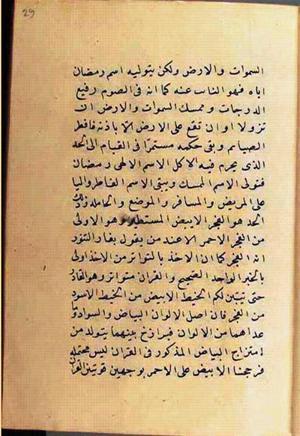 29
السموات والارض ولكن بتوليه اسم رمضان
اياه فهو الناس عنه كما انه فى الصوم رفيع
الدرجات وممسك السموات والارض ان
تزولا او ان تقع على الارض الا باذنه فافطر
الصيام وبقى حكمه مستمرا فى القيام الى الحد
الذى يحرم فيه الاكل الاسم الالهى رمضان
فتولى الاسم الممسك وبقى الاسم الفاطر واليا
على المريض والمسافر والموضع والحامل وذلك
الحد هو الفجر الابيض المستطير وهو الاولى
من الفجر الاحمر الا عند من يقول بفار التنور
انه الفجر كما ان الاخذ بالتواتر من الاخذ اولى
بالخبر الواحد الصحيح والقران متواتر وهو القائل
حتى يتبين لكم الخيط الابيض من الخيط الاسود
من الفجر فان اصل الالوان البياض والسواد وما
عداهما من الالوان فبرازخ بينهما يتولد من
امتزاج البياض المذكور فى القران ليس محتمله
فرجحنا الابيض على الاحمر بوجهين قوتين القران